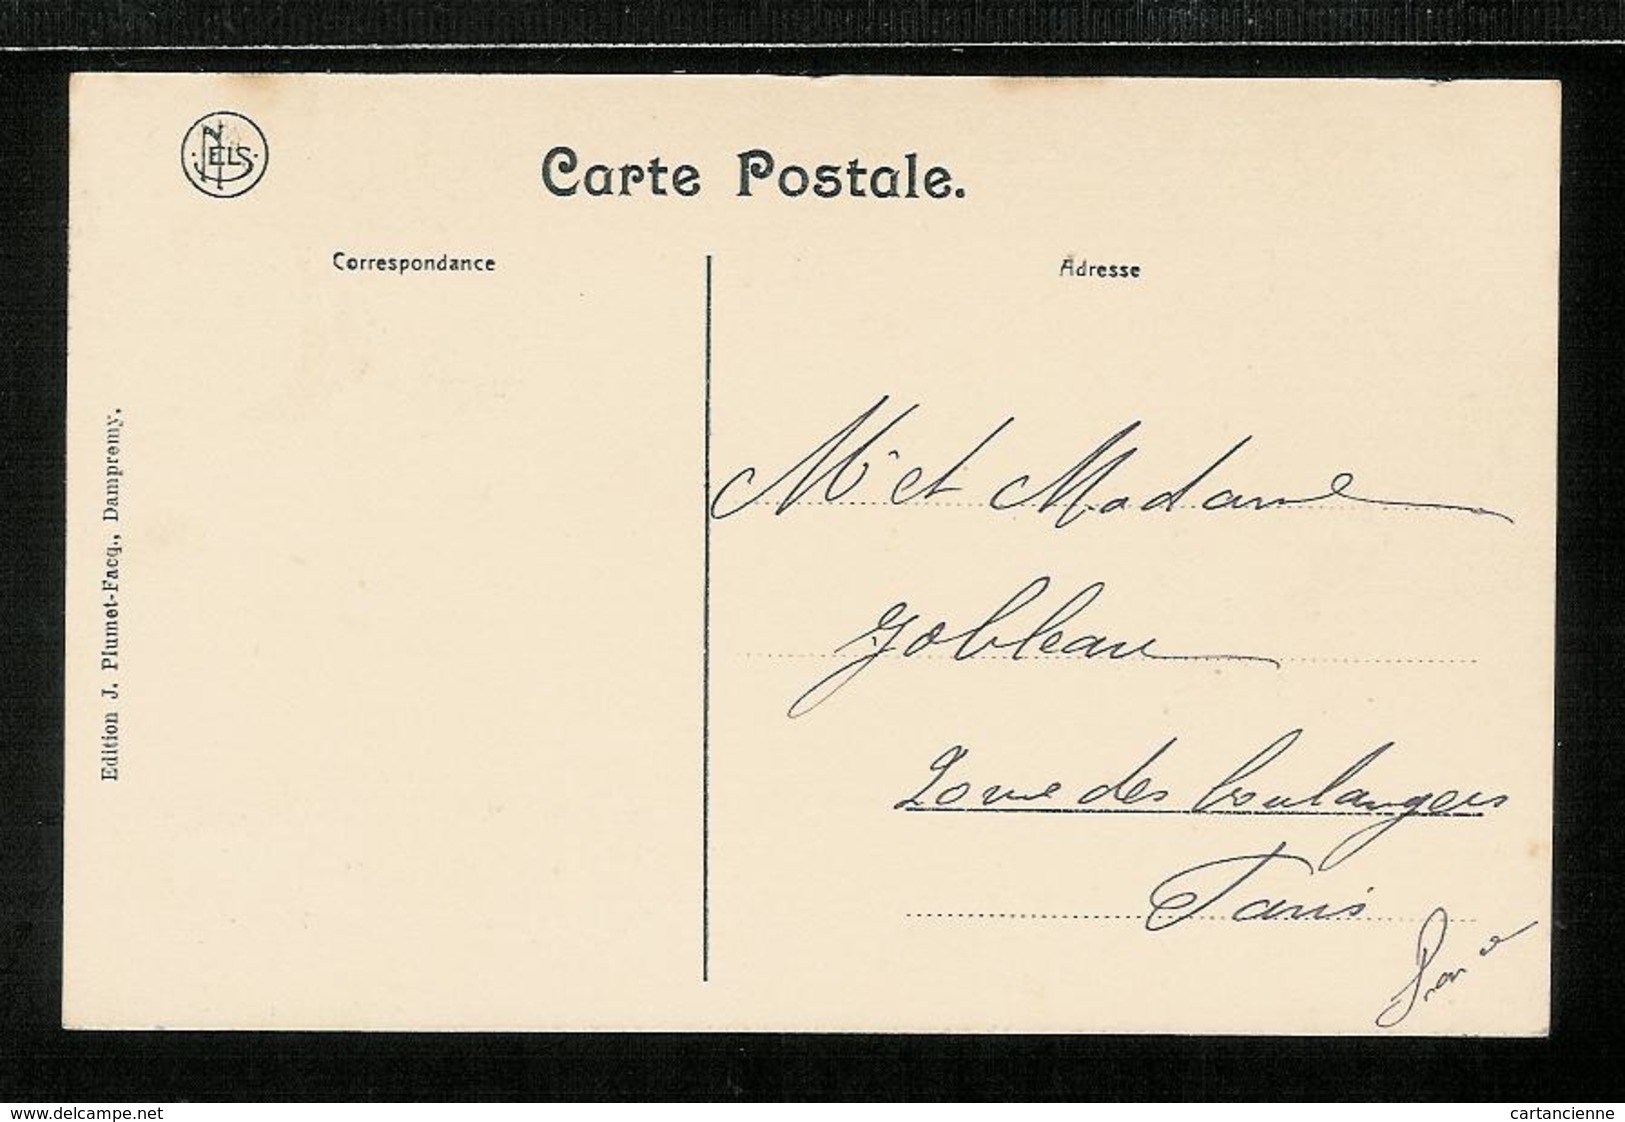 NELS
Carte Postale.
Correspondance
Adresse
Edition J. Plumet-Facq., Dampremy.
Mr et Madame
Gobleau
20 rue des boulangers
Paris
delcampe.net
cartancienne